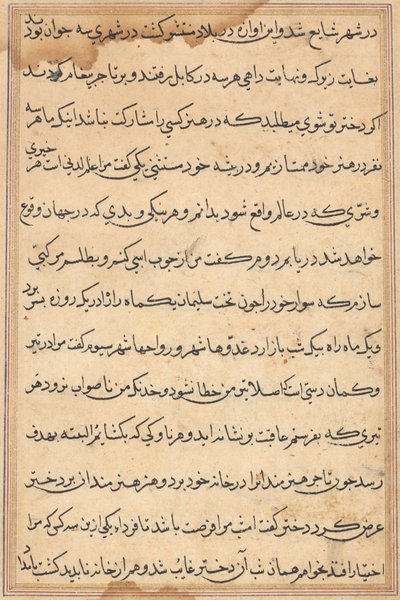 در شهر شایع شد و این اوازه در بلاد منتشر کشت در شهری سه جوان بودند
بغایت زیرک و نهایت داهی هر سه در کابل رفتند و بر تاجر پیغام کردند
اکر دختر تو شوی میطلبد که در هنر کسی را مشارکت نباشد اینک ما هر سه
نفر در هنر خود ممتازیم و در پیشه خود مستثنی یکی گفت مرا علم لدنی است هر خیری
و شرّی که در عالم واقع شود بدانم و هر نیکی و بدی که در جهان وقوع
خواهد شد دریابم دوم گفت من از چوب اسپی کنم و بطلسم مرکبی
سازم که سوار خود را چون تخت سلیمان یکماه راه را در یک روزه بسر برد
و یکماه راه بیک شب بازارد غدوها شهر و رواحها شهر سیوم گفت مرا در تیر
و کمان دستی است که اصلا تیر من خطا نشود و خدنک من ناصواب نرود هر
تیری که بفرستم عاقبت بر نشانه اید و هر ناوکی که بکشایم البته بهدف
رسد چون تاجر هنرمندانرا در خانه خود برد و هنر هنرمندان بر دختر
عرض کرد دختر گفت امشب مرا فرصت باشد تا فردا یکی از این سه کس که مرا
اختیار افتد بخواهم همان شب آن دختر غایب شد و هم از خانه ناپدید کشت بامداد